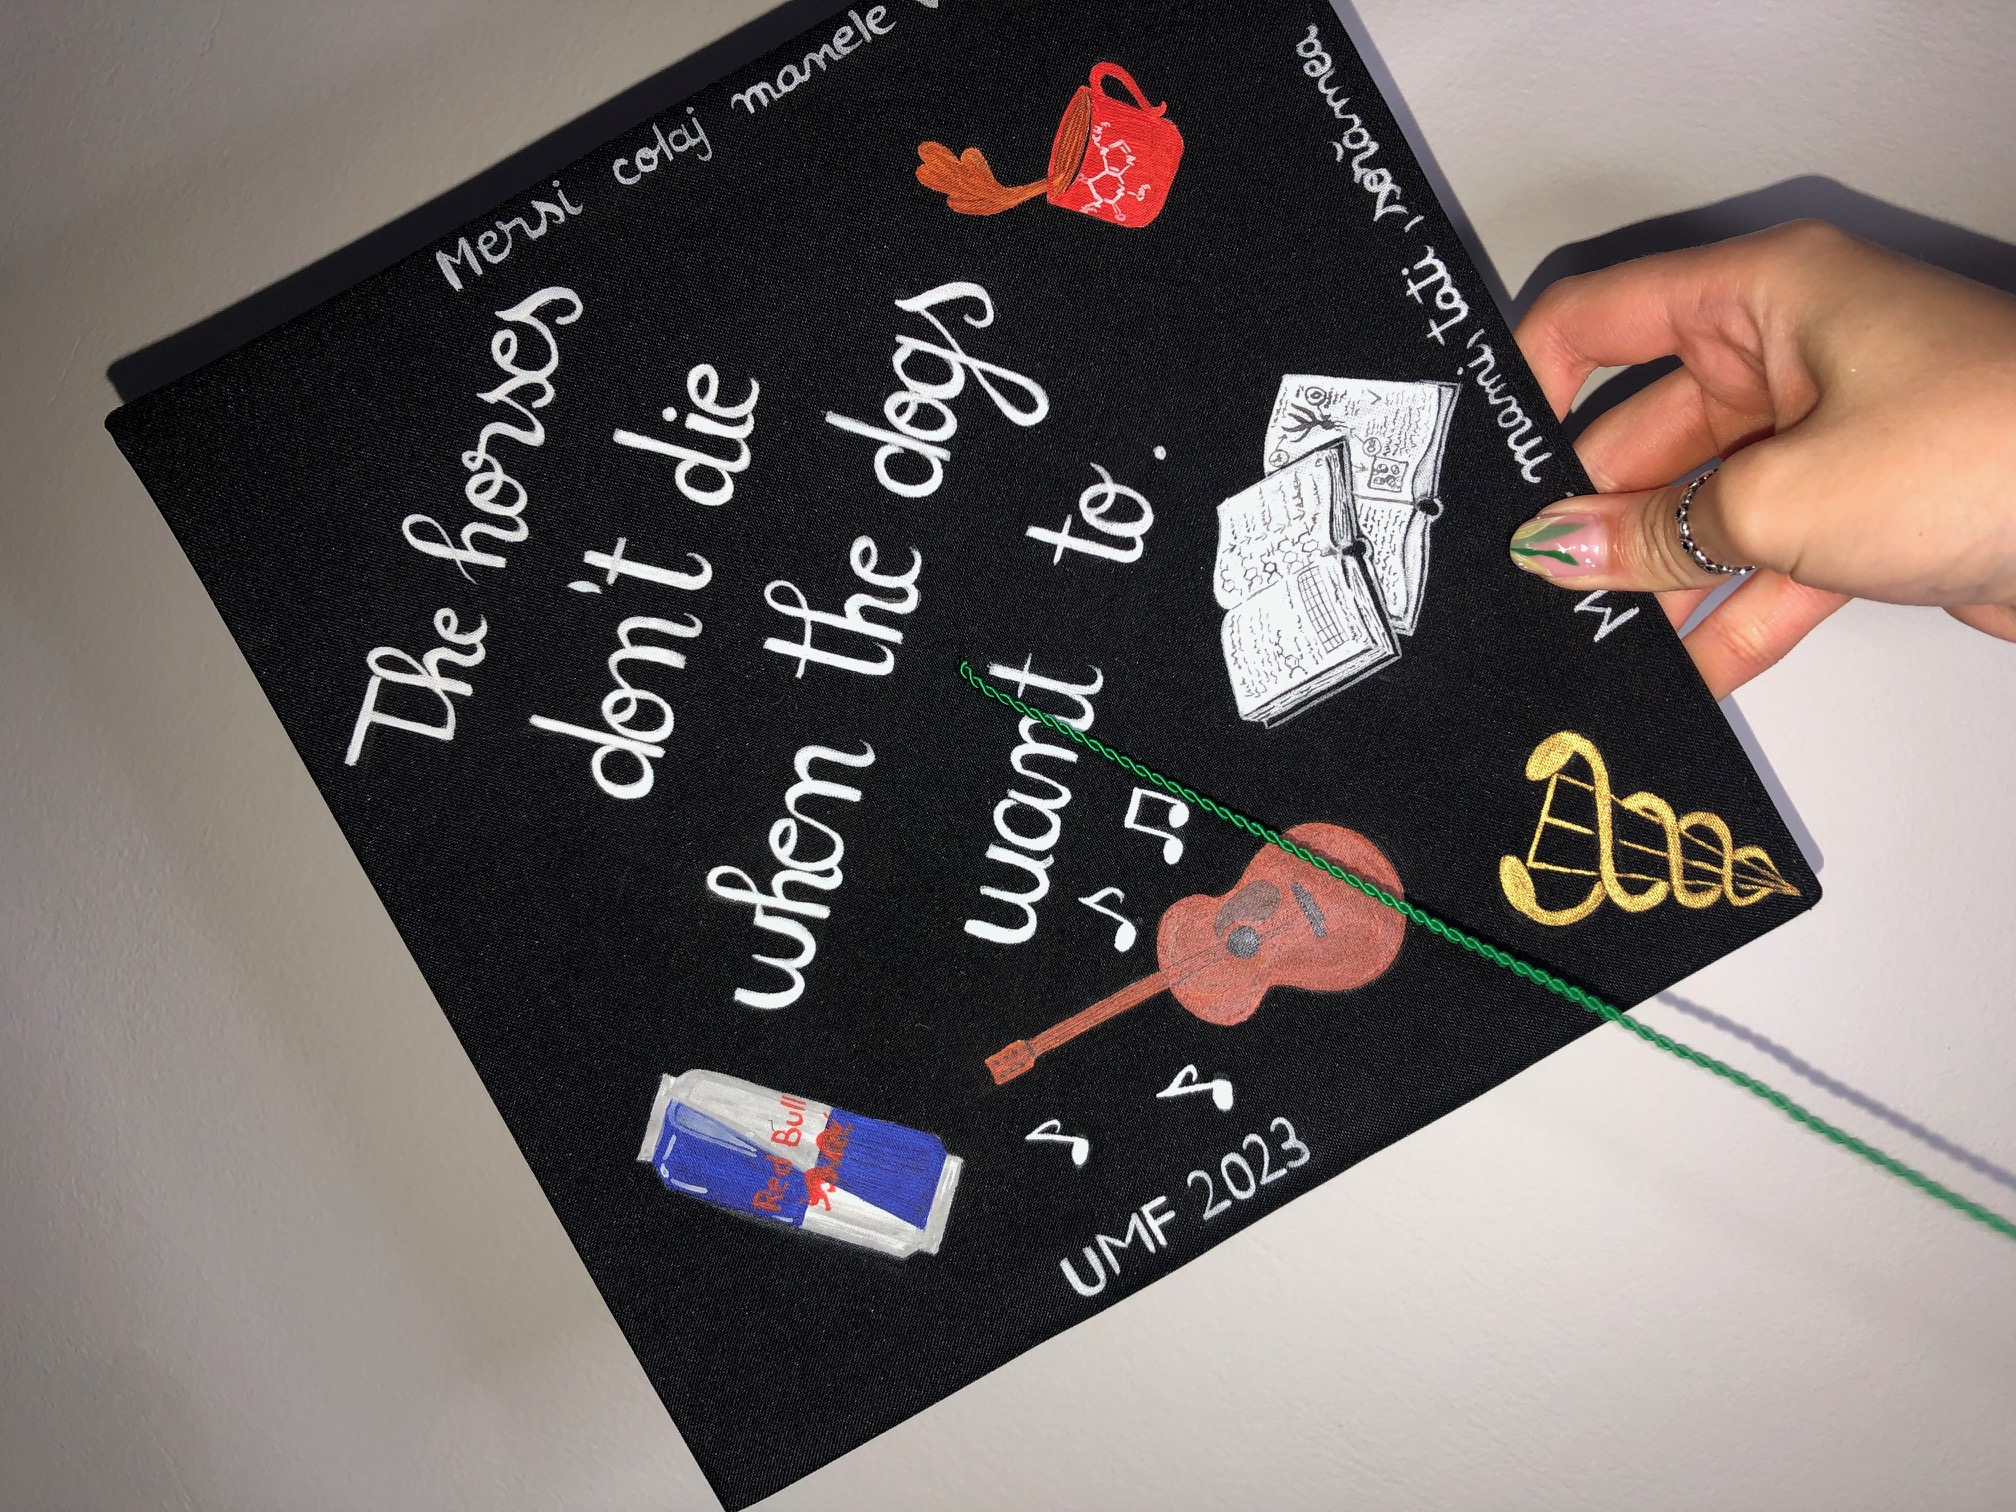 The horses
don't die
when the dogs
want to.
Mersi colaj manele
Red Bull
UMF 2023
mami, tati, sorămea